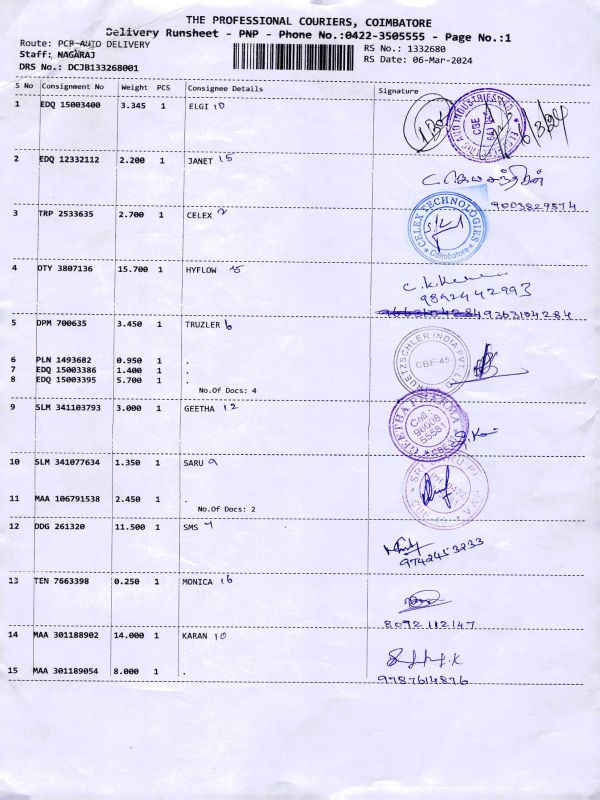 THE PROFESSIONAL COURIERS, COIMBATORE
Delivery Runsheet - PNP - Phone No.:0422-3505555 - Page No.:1
Route: PCP-AUTO DELIVERY
RS No.: 1332680
Staff: NAGARAJ
RS Date: 06-Mar-2024
DRS No.: DCJB133268001
S No Consignment No Weight PCS Consignee Details Signature
1 EDQ 15003400 3.345 1 ELGI 10
2 EDQ 12332112 2.200 1 JANET 15
9003829874
3 TRP 2533635 2.700 1 CELEX 2
CELEX TECHNOLOGIES
Coimbatore
4 OTY 3807136 15.700 1 HYFLOW 15
9892442993
9363104284
5 DPM 700635 3.450 1 TRUZLER 6
CBE-45
6 PLN 1493682 0.950 1 .
7 EDQ 15003386 1.400 1 .
8 EDQ 15003395 5.700 1 .
No.Of Docs: 4
9 SLM 341103793 3.000 1 GEETHA 12
GEETHA PHARMA
Cell:
10 SLM 341077634 1.350 1 SARU 9
11 MAA 106791538 2.450 1 .
No.Of Docs: 2
12 DDG 261320 11.500 1 SMS 7
9742453233
13 TEN 7663398 0.250 1 MONICA 16
8092112147
14 MAA 301188902 14.000 1 KARAN 10
15 MAA 301189054 8.000 1 .
9787614876